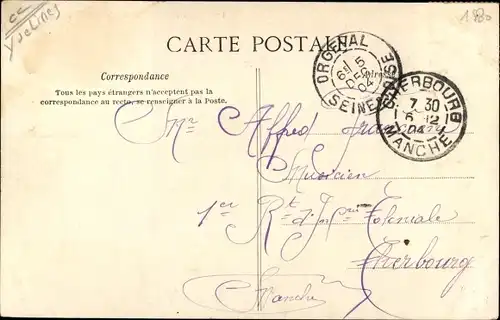 CC
Yvelines
1.980
CARTE POSTALE
Correspondance
Tous les pays étrangers n'acceptent pas la
correspondance au recto, se renseigner à la Poste.
Adresse
ORGEVAL
6 5
DÉC
04
SEINE-ET-OISE
CHERBOURG
7 30
6 12
04
MANCHE
Mr Alfred
Musicien
1er Rt d'Inf rie Coloniale
Cherbourg
Manche